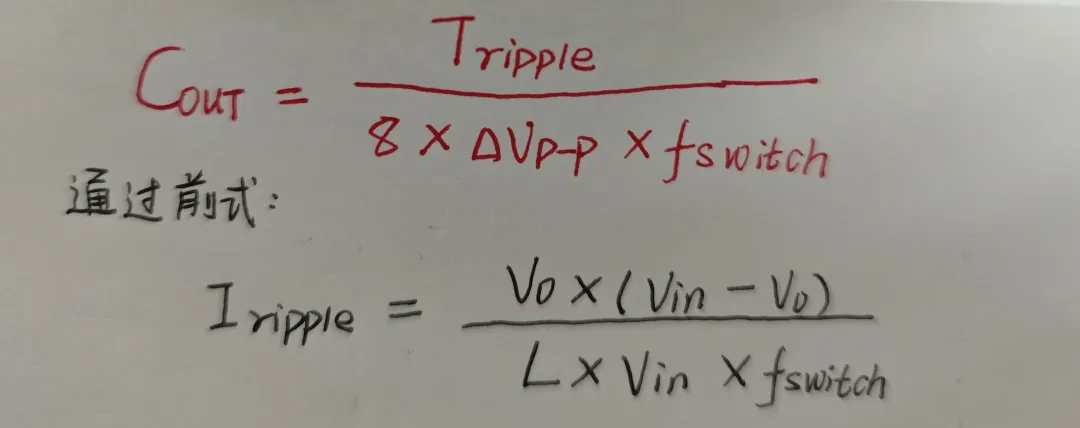 C_OUT = T_ripple / (8 × ΔV_P-P × f_switch)
通过前式:
I_ripple = V_O × (V_in - V_O) / (L × V_in × f_switch)